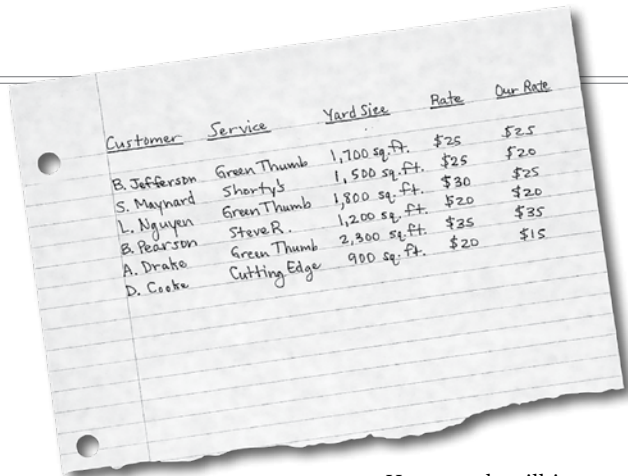 Customer Service Yard Size Rate Our Rate
B. Jefferson Green Thumb 1,700 sq.ft. $25 $25
S. Maynard Shorty's 1,500 sq.ft. $25 $20
L. Nguyen Green Thumb 1,800 sq.ft. $30 $25
B. Pearson Steve R. 1,200 sq.ft. $20 $20
A. Drake Green Thumb 2,300 sq.ft. $35 $35
D. Cooke Cutting Edge 900 sq.ft. $20 $15